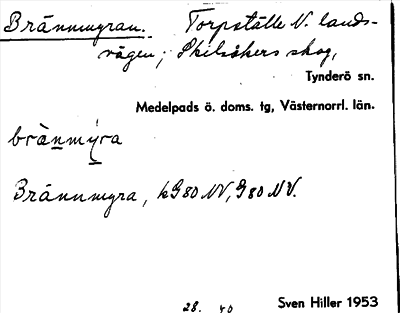 Brännmyran. Torpställe N. lands-
vägen; Skilsåkers skog,
Tynderö sn.
Medelpads ö. doms. tg, Västernorrl. län.
brànmỳra
Brännmyra, kG80NV, G80NV.
28. 40 Sven Hiller 1953